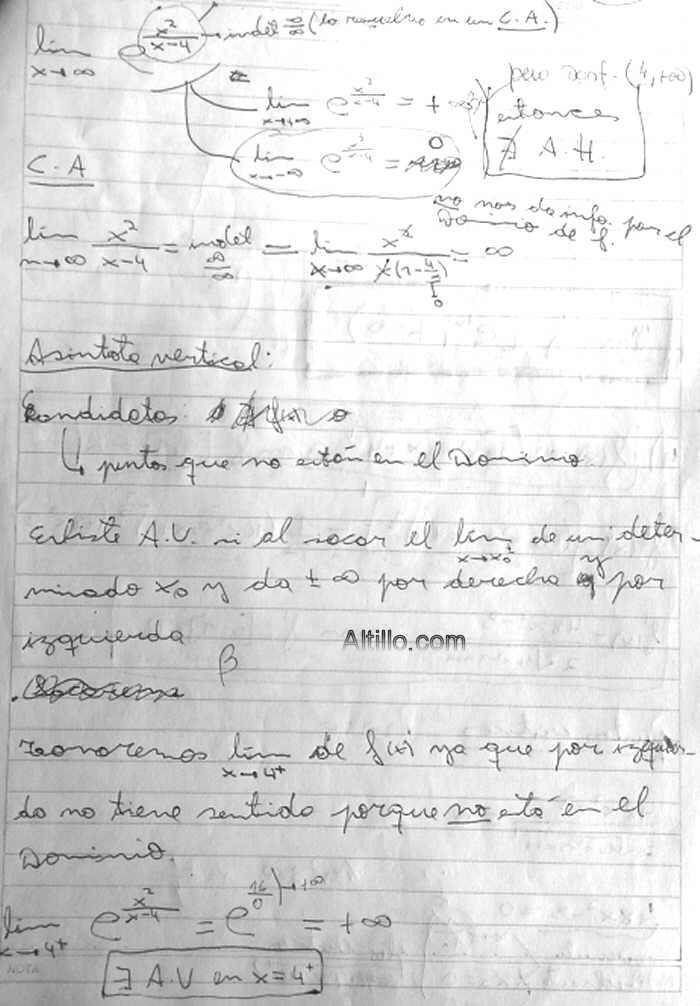 lim x→∞ e^(x²/(x-4)) → indet ∞/∞ (lo resuelvo en un C.A.)
lim x→+∞ e^(x²/(x-4)) = +∞
pero Domf. (4,+∞)
entonces
∄ A.H.
lim x→-∞ e^(x²/(x-4)) = 0
no nos da info. por el
Dominio de f.
C.A
lim x→∞ x²/(x-4) = indet ∞/∞ = lim x→∞ x²/(x(1-4/x)) = ∞
0
Asintota vertical:
Candidatos:
↳ puntos que no están en el Dominio.
Existe A.V. si al sacar el lim x→x₀ de un deter-
minado x₀ y da ± ∞ por derecha y por
izquierda
Altillo.com
β
lim x→4⁺ de f(x) ya que por izquier-
da no tiene sentido porque no está en el
Dominio.
lim x→4⁺ e^(x²/(x-4)) = e^(16/0) →+∞ = +∞
∃ A.V en x=4⁺
NOTA